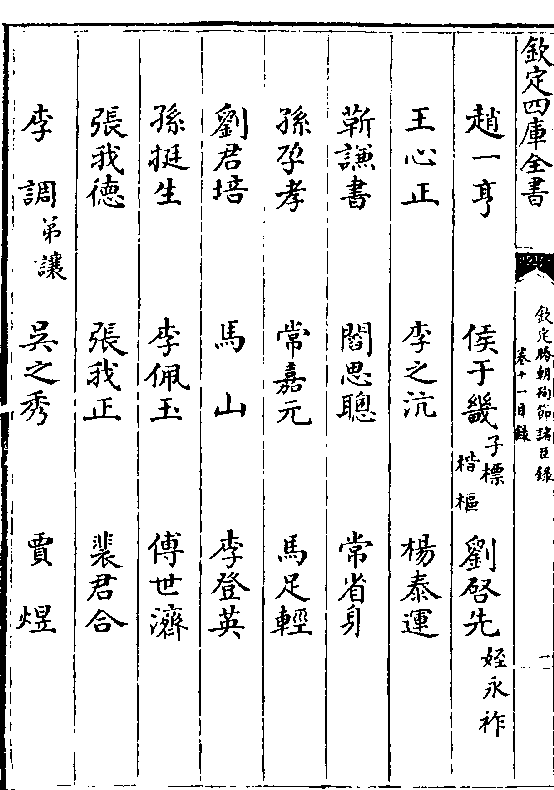 欽定四庫全書
欽定勝朝殉節諸臣錄
卷十一目錄
一
趙一亨 侯于畿 子標 楷 樞 劉啓先 姪永祚
王心正 李之沆 楊泰運
靳謙書 閻思聰 常省身
孫孕孝 常嘉元 馬足輕
劉君培 馬山 李登英
孫挺生 李佩玉 傅世濟
張我德 張我正 裴君合
李調 弟讓 吳之秀 賈煜